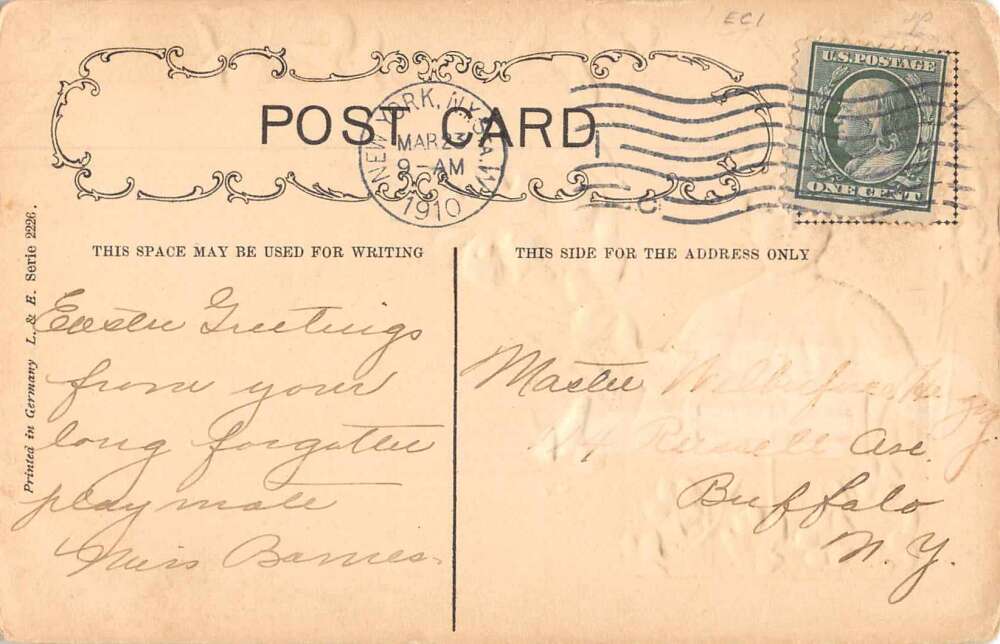 EC1
POST CARD
NEW YORK, N.Y. STA. W
MAR 23
9-AM
1910
C
U.S. POSTAGE
ONE CENT
THIS SPACE MAY BE USED FOR WRITING
THIS SIDE FOR THE ADDRESS ONLY
Printed in Germany L. & E. Serie 2226.
Easter Greetings
from your
long forgotten
playmate
Miss Barnes.
Master
Russell Ave.
Buffalo
N. Y.